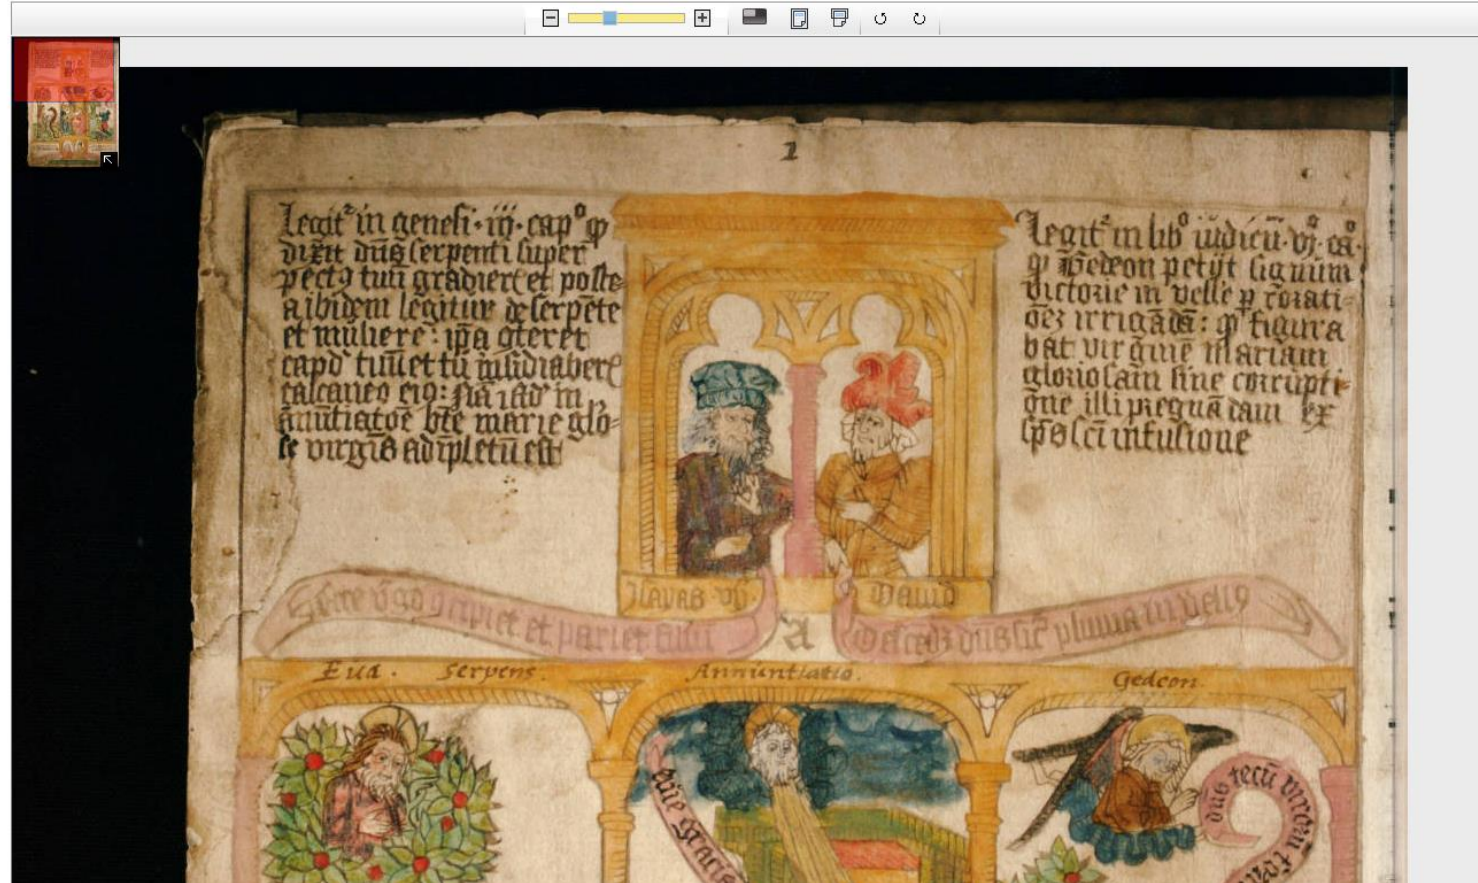 1
Legit᷑ in genesi · iij · cap° ꝙ
dixit dn̄s serpenti super
pectꝰ tuū gradier᷑ et poste-
a ibidem legitur de serpēte
et muliere : ip̄a ꝯteret
capd̕ tuū et tu īsidiaber᷑
calcaneo eiꝰ : nā istud in
ānūtiatōe bt̄e marie glo-
se virgīs adīpletū est
Legit᷑ in lib° iudicū · vj · ca°
ꝙ Gedeon petijt signum
victorie in velle ꝑ
irrigādā : ꝙ figura
bat virginē Mariam
gloriosam sine corrupti-
one illi pregnādam ex
sp̄s sc̄i infusione
Ysayas · vij ·
Dauid
Ecce v̄go ꝯcipiet et pariet filiū
A
Descēdz dn̄s sic̄ pluuia in vellꝰ
Eua . Serpens .
Annūntiatio .
Gedeon
aue gracia
dn̄s tecū virorū